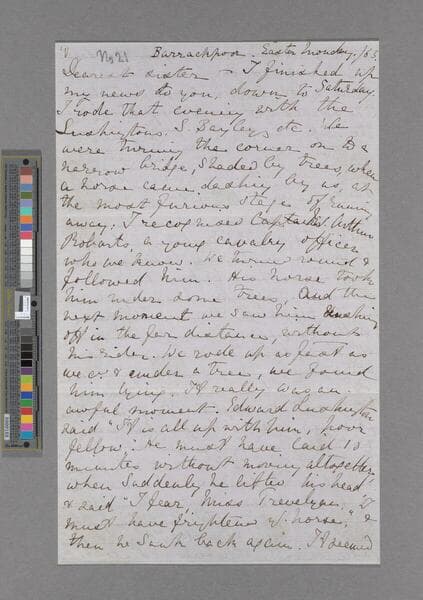 No 21
Barrackpoor. Easter Monday. /63.
Dearest sister - I finished up
my news to you, down to Saturday.
I rode that evening with the
Lushingtons. S. Bayley, etc. We
were turning the corner on a
narrow bridge, shaded by trees, when
a horse came dashing by us, at
the most furious stage of running
away. I recognised Captain Arthur
Roberts, a young cavalry officer
who we know. We turned round &
followed him. His horse took
him under some trees, and the
next moment we saw him dashing
off in the far distance, without
his rider. We rode up as fast as
we cd & under a tree, we found
him lying. It really was an
awful moment. Edward Lushington
said "It is all up with him, poor
fellow". He must have laid 10
minutes without moving altogether,
when suddenly he lifted his head
& said "I fear, Miss Trevelyan, I
must have frightened yr horse," &
then he sank back again. It seemed